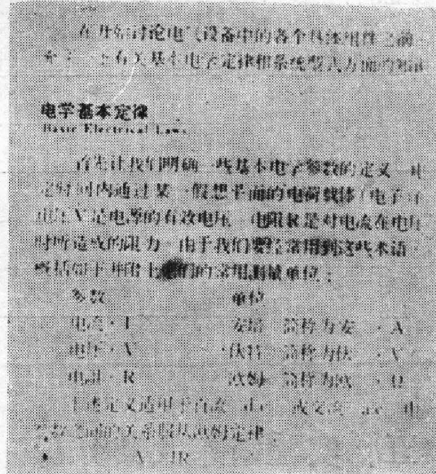 在开始讨论电气设备中的各个具体组件之前
有关基本电学定律和系统型式方面的知识
电学基本定律
Basic Electrical Laws
首先让我们明确一些基本电学参数的定义
定时间内通过某一假想平面的电荷载体(电子
电压V是电源的有效电压 电阻R是对电流在电
时所造成的阻力 由于我们要经常用到这些术语
概括如下并附上它们的常用测量单位:
参数 单位
电流·I 安培 简称为安 ·A
电压·V 伏特 简称为伏 ·V
电阻·R 欧姆 简称为欧 ·Ω
上述定义适用于直流 dc 或交流 ac
参数之间的关系服从欧姆定律
V IR